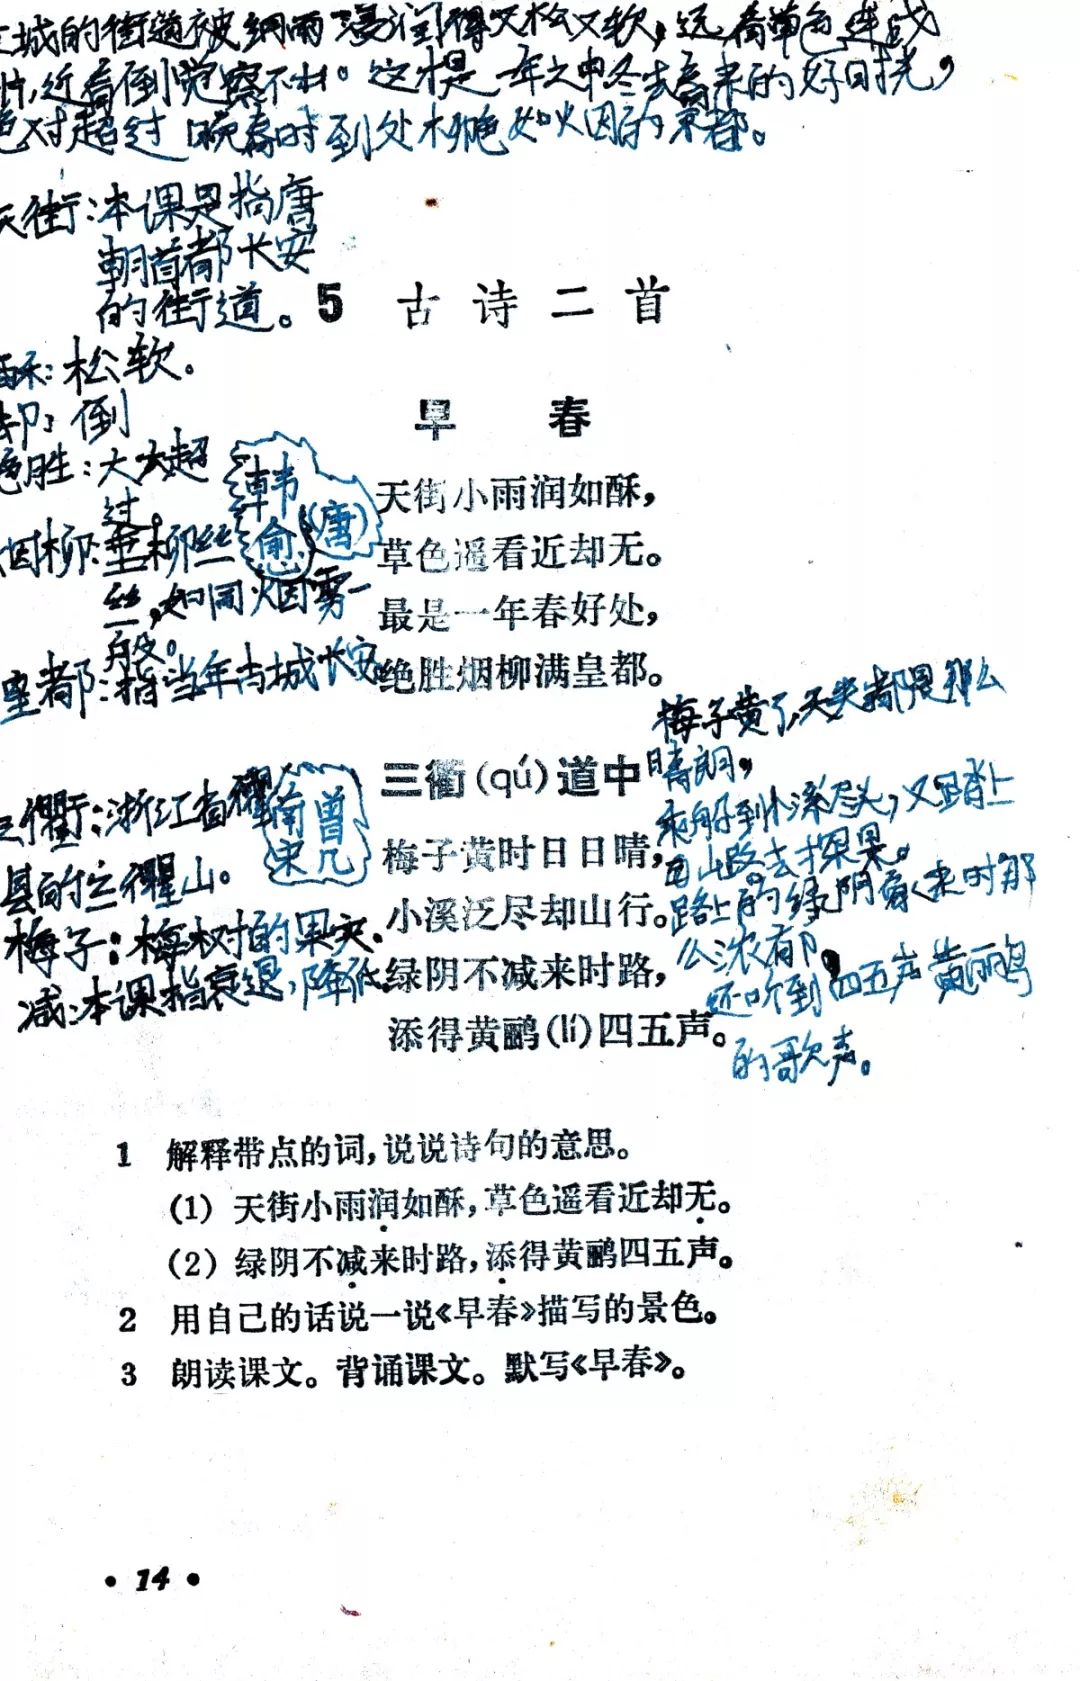 城的街道被细雨浸润得又松又软,远看草色连成
片,近看倒觉察不出。这才是一年之中冬去春来的好时光,
绝对超过晚春时到处柳色如烟的京都。
天街:本课是指唐
朝首都长安
的街道。
酥:松软。
却:倒
绝胜:大大超
过。
烟柳:垂柳丝
丝,如同烟雾一
般。
皇都:指当年古城长安
5 古诗二首
早 春
韩愈(唐)
天街小雨润如酥,
草色遥看近却无。
最是一年春好处,
绝胜烟柳满皇都。
三衢(qú)道中
南宋 曾几
梅子黄时日日晴,
小溪泛尽却山行。
绿阴不减来时路,
添得黄鹂(lí)四五声。
三衢:浙江省衢
县的三衢山。
梅子:梅树的果实.
减:本课指衰退,降低
梅子黄了,天天都是那么
晴朗,
乘船到小溪尽头,又踏上
山路去
路上的绿阴像来时那
么浓郁,
还听到四五声黄鹂鸟
的歌声。
1 解释带点的词,说说诗句的意思。
(1) 天街小雨润如酥,草色遥看近却无。
(2) 绿阴不减来时路,添得黄鹂四五声。
2 用自己的话说一说《早春》描写的景色。
3 朗读课文。背诵课文。默写《早春》。
• 14 •